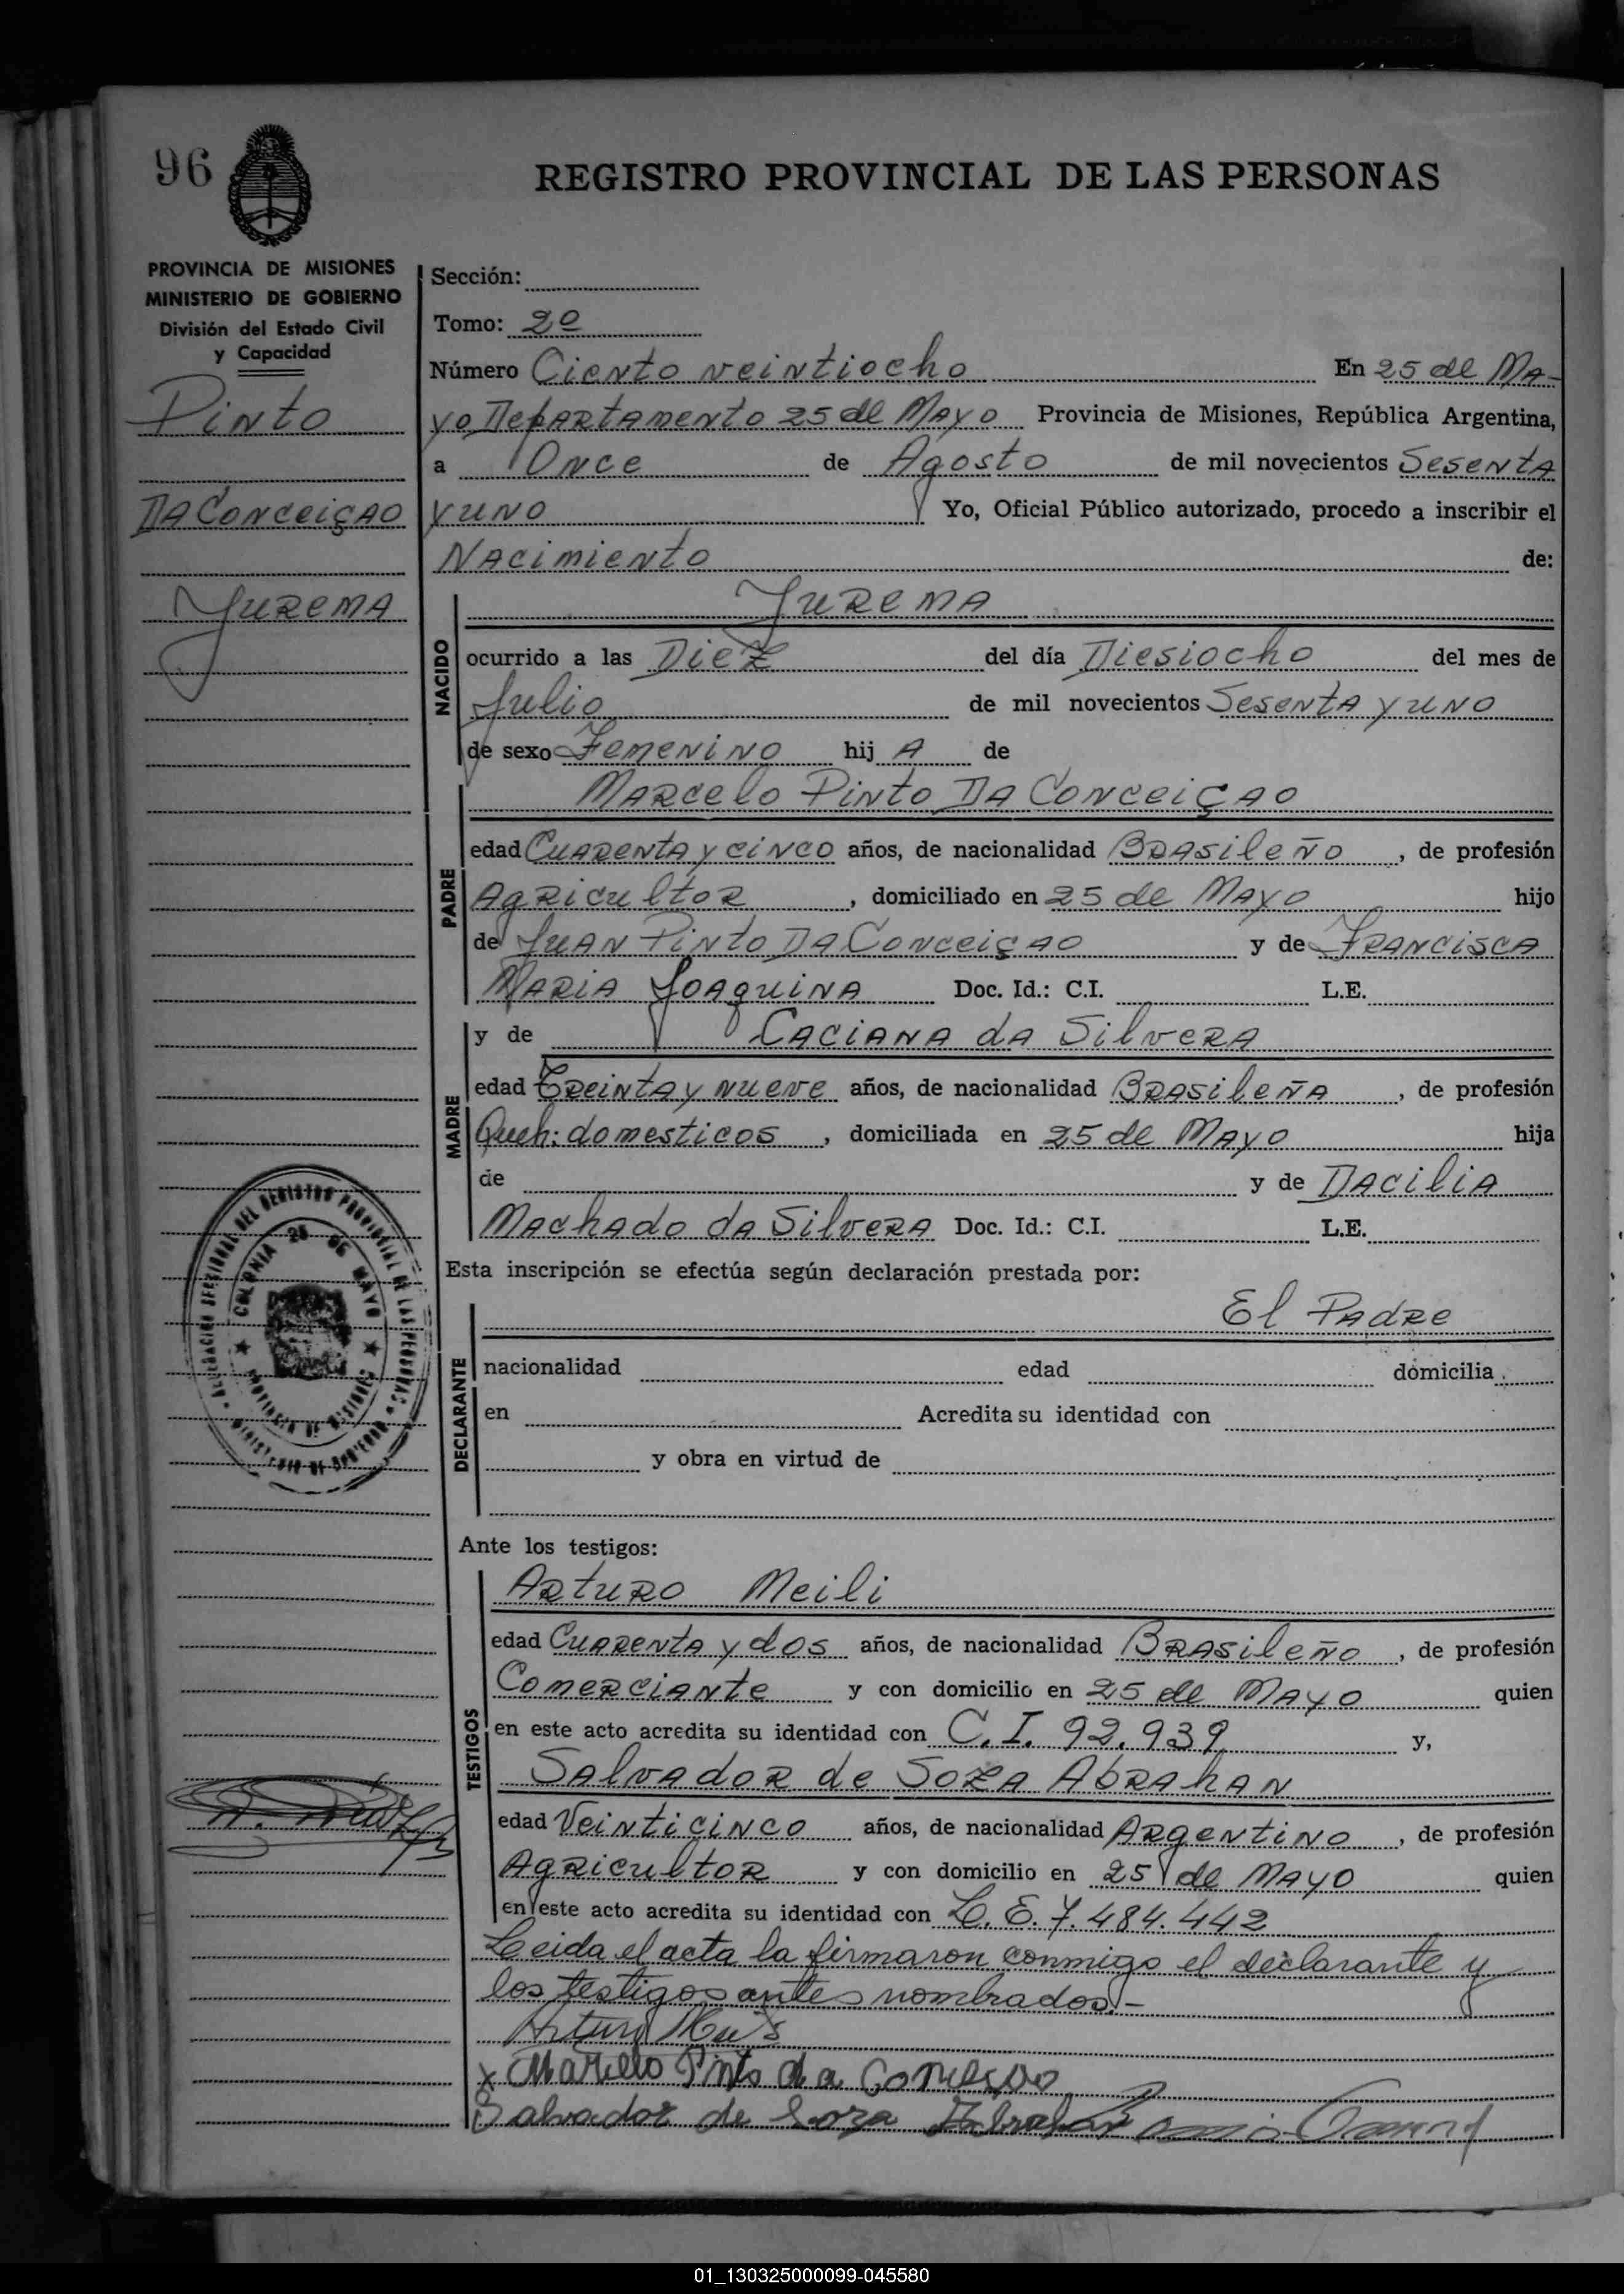 96
REGISTRO PROVINCIAL DE LAS PERSONAS
PROVINCIA DE MISIONES
MINISTERIO DE GOBIERNO
División del Estado Civil
y Capacidad
Pinto
DA Conceiçao
Jurema
Sección:
Tomo: 2º
Número Ciento veintiocho En 25 de Ma-
yo Departamento 25 de Mayo Provincia de Misiones, República Argentina,
a Once de Agosto de mil novecientos Sesenta
y uno Yo, Oficial Público autorizado, procedo a inscribir el
Nacimiento de:
NACIDO
Jurema
ocurrido a las Diez del día Diesiocho del mes de
Julio de mil novecientos Sesenta y uno
de sexo Femenino hij A de
PADRE
Marcelo Pinto Da Conceiçao
edad Cuarenta y cinco años, de nacionalidad Brasileño, de profesión
Agricultor, domiciliado en 25 de Mayo hijo
de Juan Pinto Da Conceiçao y de Francisca
Maria Joaquina Doc. Id.: C.I. L.E.
MADRE
y de Caciana da Silvera
edad Treinta y nueve años, de nacionalidad Brasileña, de profesión
Queh: domesticos, domiciliada en 25 de Mayo hija
de y de Dacilia
Machado da Silvera Doc. Id.: C.I. L.E.
Esta inscripción se efectúa según declaración prestada por:
DECLARANTE
El Padre
nacionalidad edad domicilia
en Acredita su identidad con
y obra en virtud de
Ante los testigos:
TESTIGOS
Arturo Meili
edad Cuarenta y dos años, de nacionalidad Brasileño, de profesión
Comerciante y con domicilio en 25 de Mayo quien
en este acto acredita su identidad con C.I. 92.939 y,
Salvador de Soza Abrahan
edad Veinticinco años, de nacionalidad Argentino, de profesión
Agricultor y con domicilio en 25 de Mayo quien
en este acto acredita su identidad con L.E. 7.484.442
Leida el acta la firmaron conmigo el declarante y
los testigos antes nombrados.-
Arturo
x Marcelo Pinto da Conceiçao
Salvador de Soza Abrahan
COLONIA 25 DE MAYO
PROVINCIA DE MISIONES
DELEGACION SECCIONAL DEL REGISTRO PROVINCIAL DE LAS PERSONAS
MINISTERIO DE GOBIERNO
01_130325000099-045580